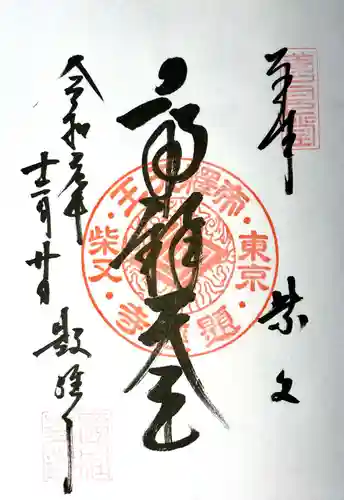 奉拝
柴又
帝釈天王
令和元年
十二月廿日
帝釋天王
東京
題経寺
柴又